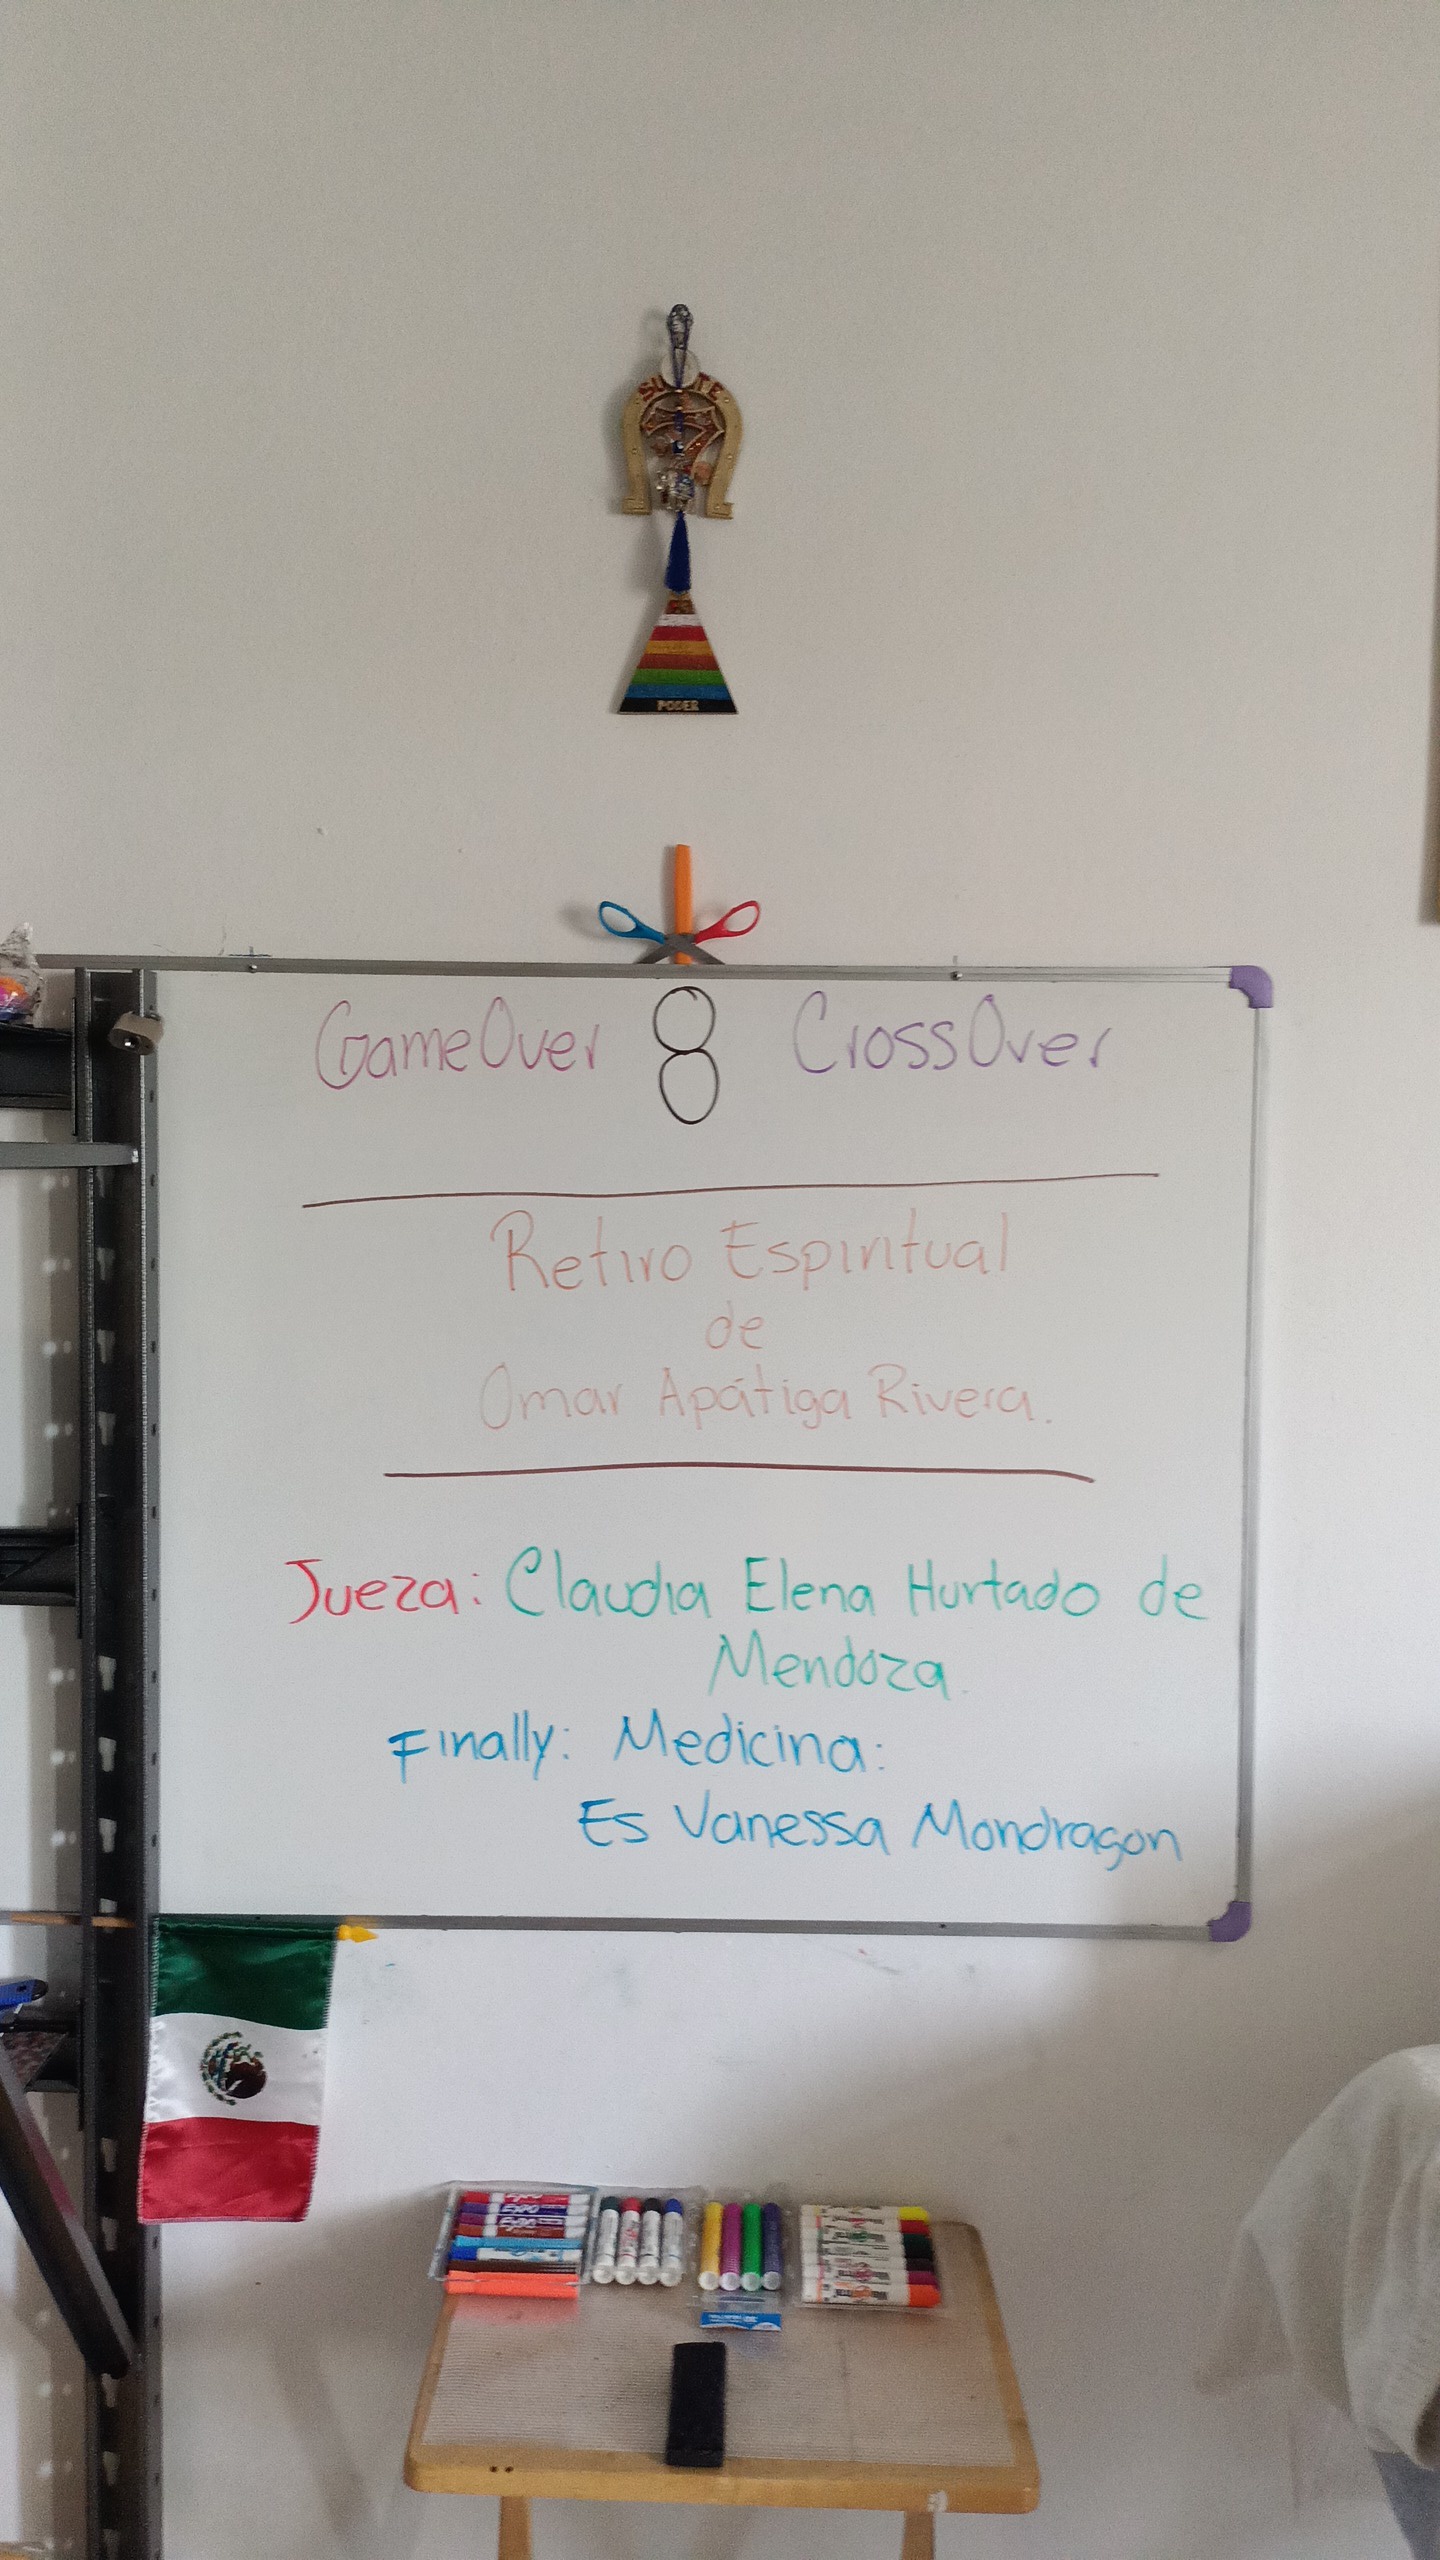 SUERTE
7
PODER
GameOver 8 CrossOver
Retiro Espiritual
de
Omar Apátiga Rivera.
Jueza: Claudia Elena Hurtado de
Mendoza.
Finally: Medicina:
Es Vanessa Mondragon
EXPO
EXPO
EXPO